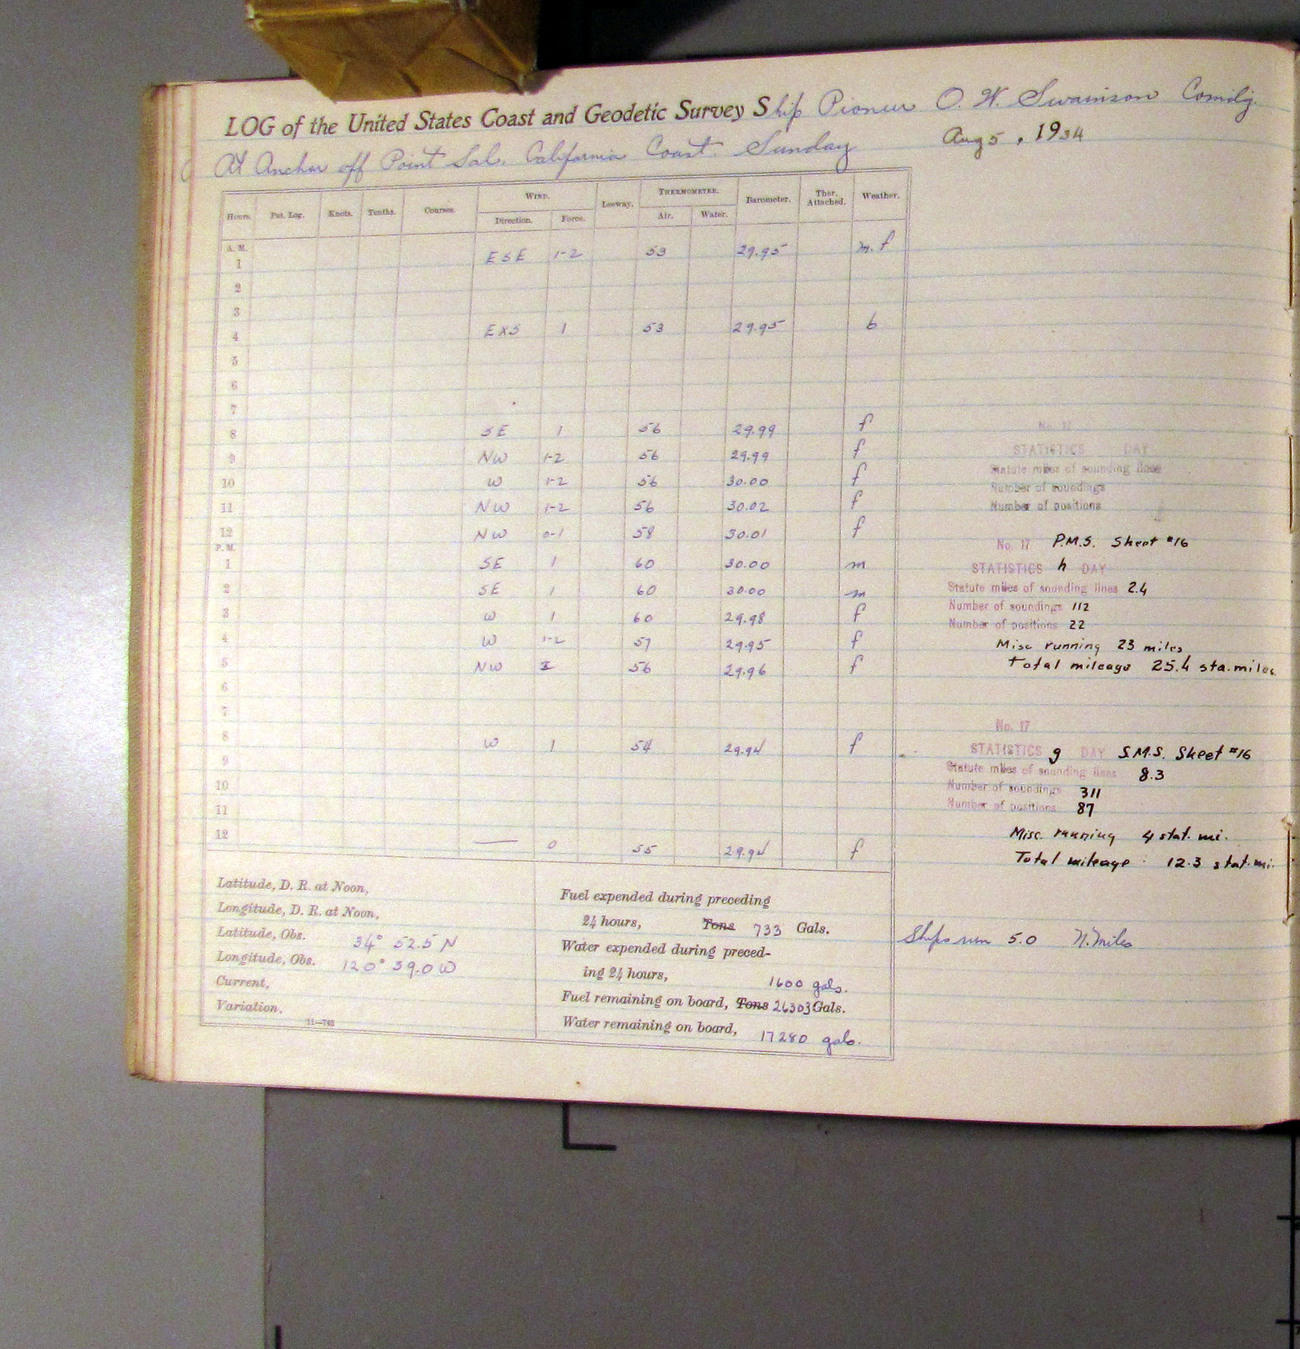 LOG of the United States Coast and Geodetic Survey Ship Pioneer O. W. Swainson Comdg.
At Anchor off Point Sal, California Coast. Sunday Aug 5, 1934
Hours. Pat. Log. Knots. Tenths. Courses. WIND. Direction. Force. Leeway. THERMOMETER. Air. Water. Barometer. Ther. Attached. Weather.
A. M.
1 ESE 1-2 53 29.95 m.f
2
3
4 ExS 1 53 29.95 b
5
6
7
8 SE 1 56 29.99 f
9 NW 1-2 56 29.99 f
10 W 1-2 56 30.00 f
11 NW 1-2 56 30.02 f
12 NW 0-1 58 30.01 f
P. M.
1 SE 1 60 30.00 m
2 SE 1 60 30.00 m
3 W 1 60 29.98 f
4 W 1-2 57 29.95 f
5 NW 56 29.96 f
6
7
8 W 1 54 29.94 f
9
10
11
12 — 0 55 29.94 f
No. 17
STATISTICS DAY
Statute miles of sounding lines
Number of soundings
Number of positions
No. 17 P.M.S. Sheet #16
STATISTICS h DAY
Statute miles of sounding lines 2.4
Number of soundings 112
Number of positions 22
Misc running 23 miles
Total mileage 25.4 sta. miles
No. 17
STATISTICS g DAY S.M.S. Sheet #16
Statute miles of sounding lines 8.3
Number of soundings 311
Number of positions 87
Misc. running 4 stat. mi.
Total mileage 12.3 stat. mi.
Ships run 5.0 N. Miles
Latitude, D. R. at Noon,
Longitude, D. R. at Noon,
Latitude, Obs. 34° 52.5 N
Longitude, Obs. 120° 39.0 W
Current,
Variation,
11—763
Fuel expended during preceding
24 hours, Tons 733 Gals.
Water expended during preced-
ing 24 hours, 1600 gals.
Fuel remaining on board, Tons 26303 Gals.
Water remaining on board, 17280 gals.